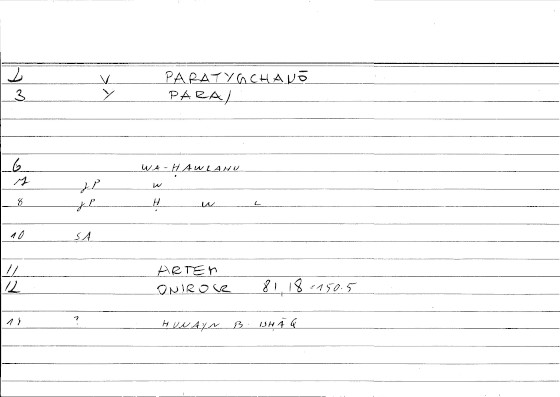 1 V PARATYGCHANŌ
3 Y PARA/
6 WA-ḤAWLAHU
7 JP W
8 JP Ḥ W L
10 SA
11 ARTEM
12 ONIROCR 81,18-150.5
14 ? HUNAYN B. ISHĀQ